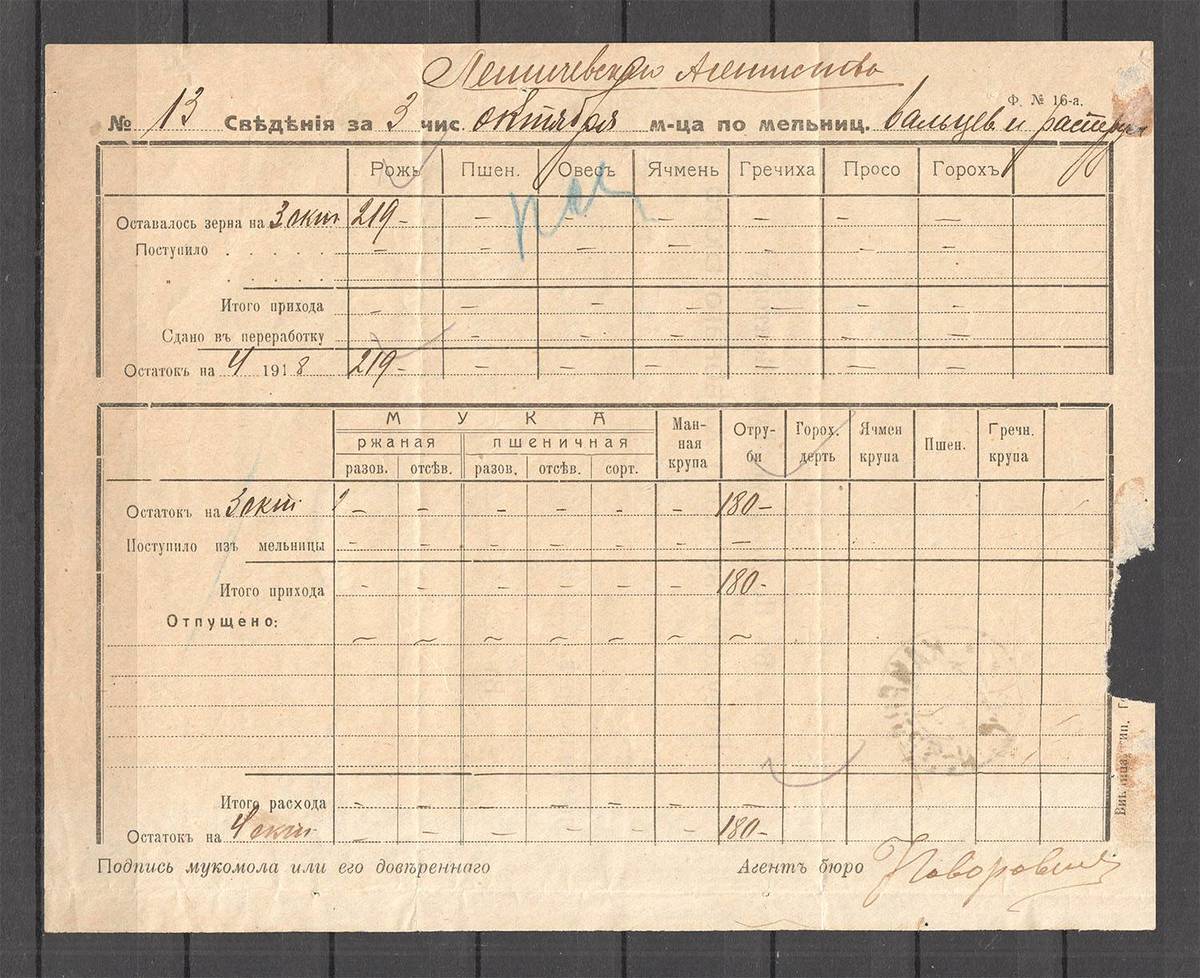 Летичевское Агентство
Ф. № 16-а.
№ 13 Свѣдѣнія за 3 чис. октября м-ца по мельниц. вальцев и
Рожь Пшен. Овесъ Ячмень Гречиха Просо Горохъ
Оставалось зерна на 3 окт 219 - - - - - - -
Поступило . . . . . - - - - - - -
" . . . . .
Итого прихода - - - - - - -
Сдано въ переработку - - - - - -
Остатокъ на 4 1918 219 - - - - - - -
МУКА
ржаная пшеничная
разов. отсѣв. разов. отсѣв. сорт. Ман-ная крупа Отру-би Горох. дерть Ячмен крупа Пшен. Гречн. крупа
Остатокъ на 3 окт - - - - - - 180 -
Поступило изъ мельницы - - - - - - -
Итого прихода - - - - - - 180 -
Отпущено:
~ ~ ~ ~ ~ ~ ~
Итого расхода - - - - - - -
Остатокъ на 4 окт - - - - - - 180 -
Подпись мукомола или его довѣреннаго Агентъ бюро